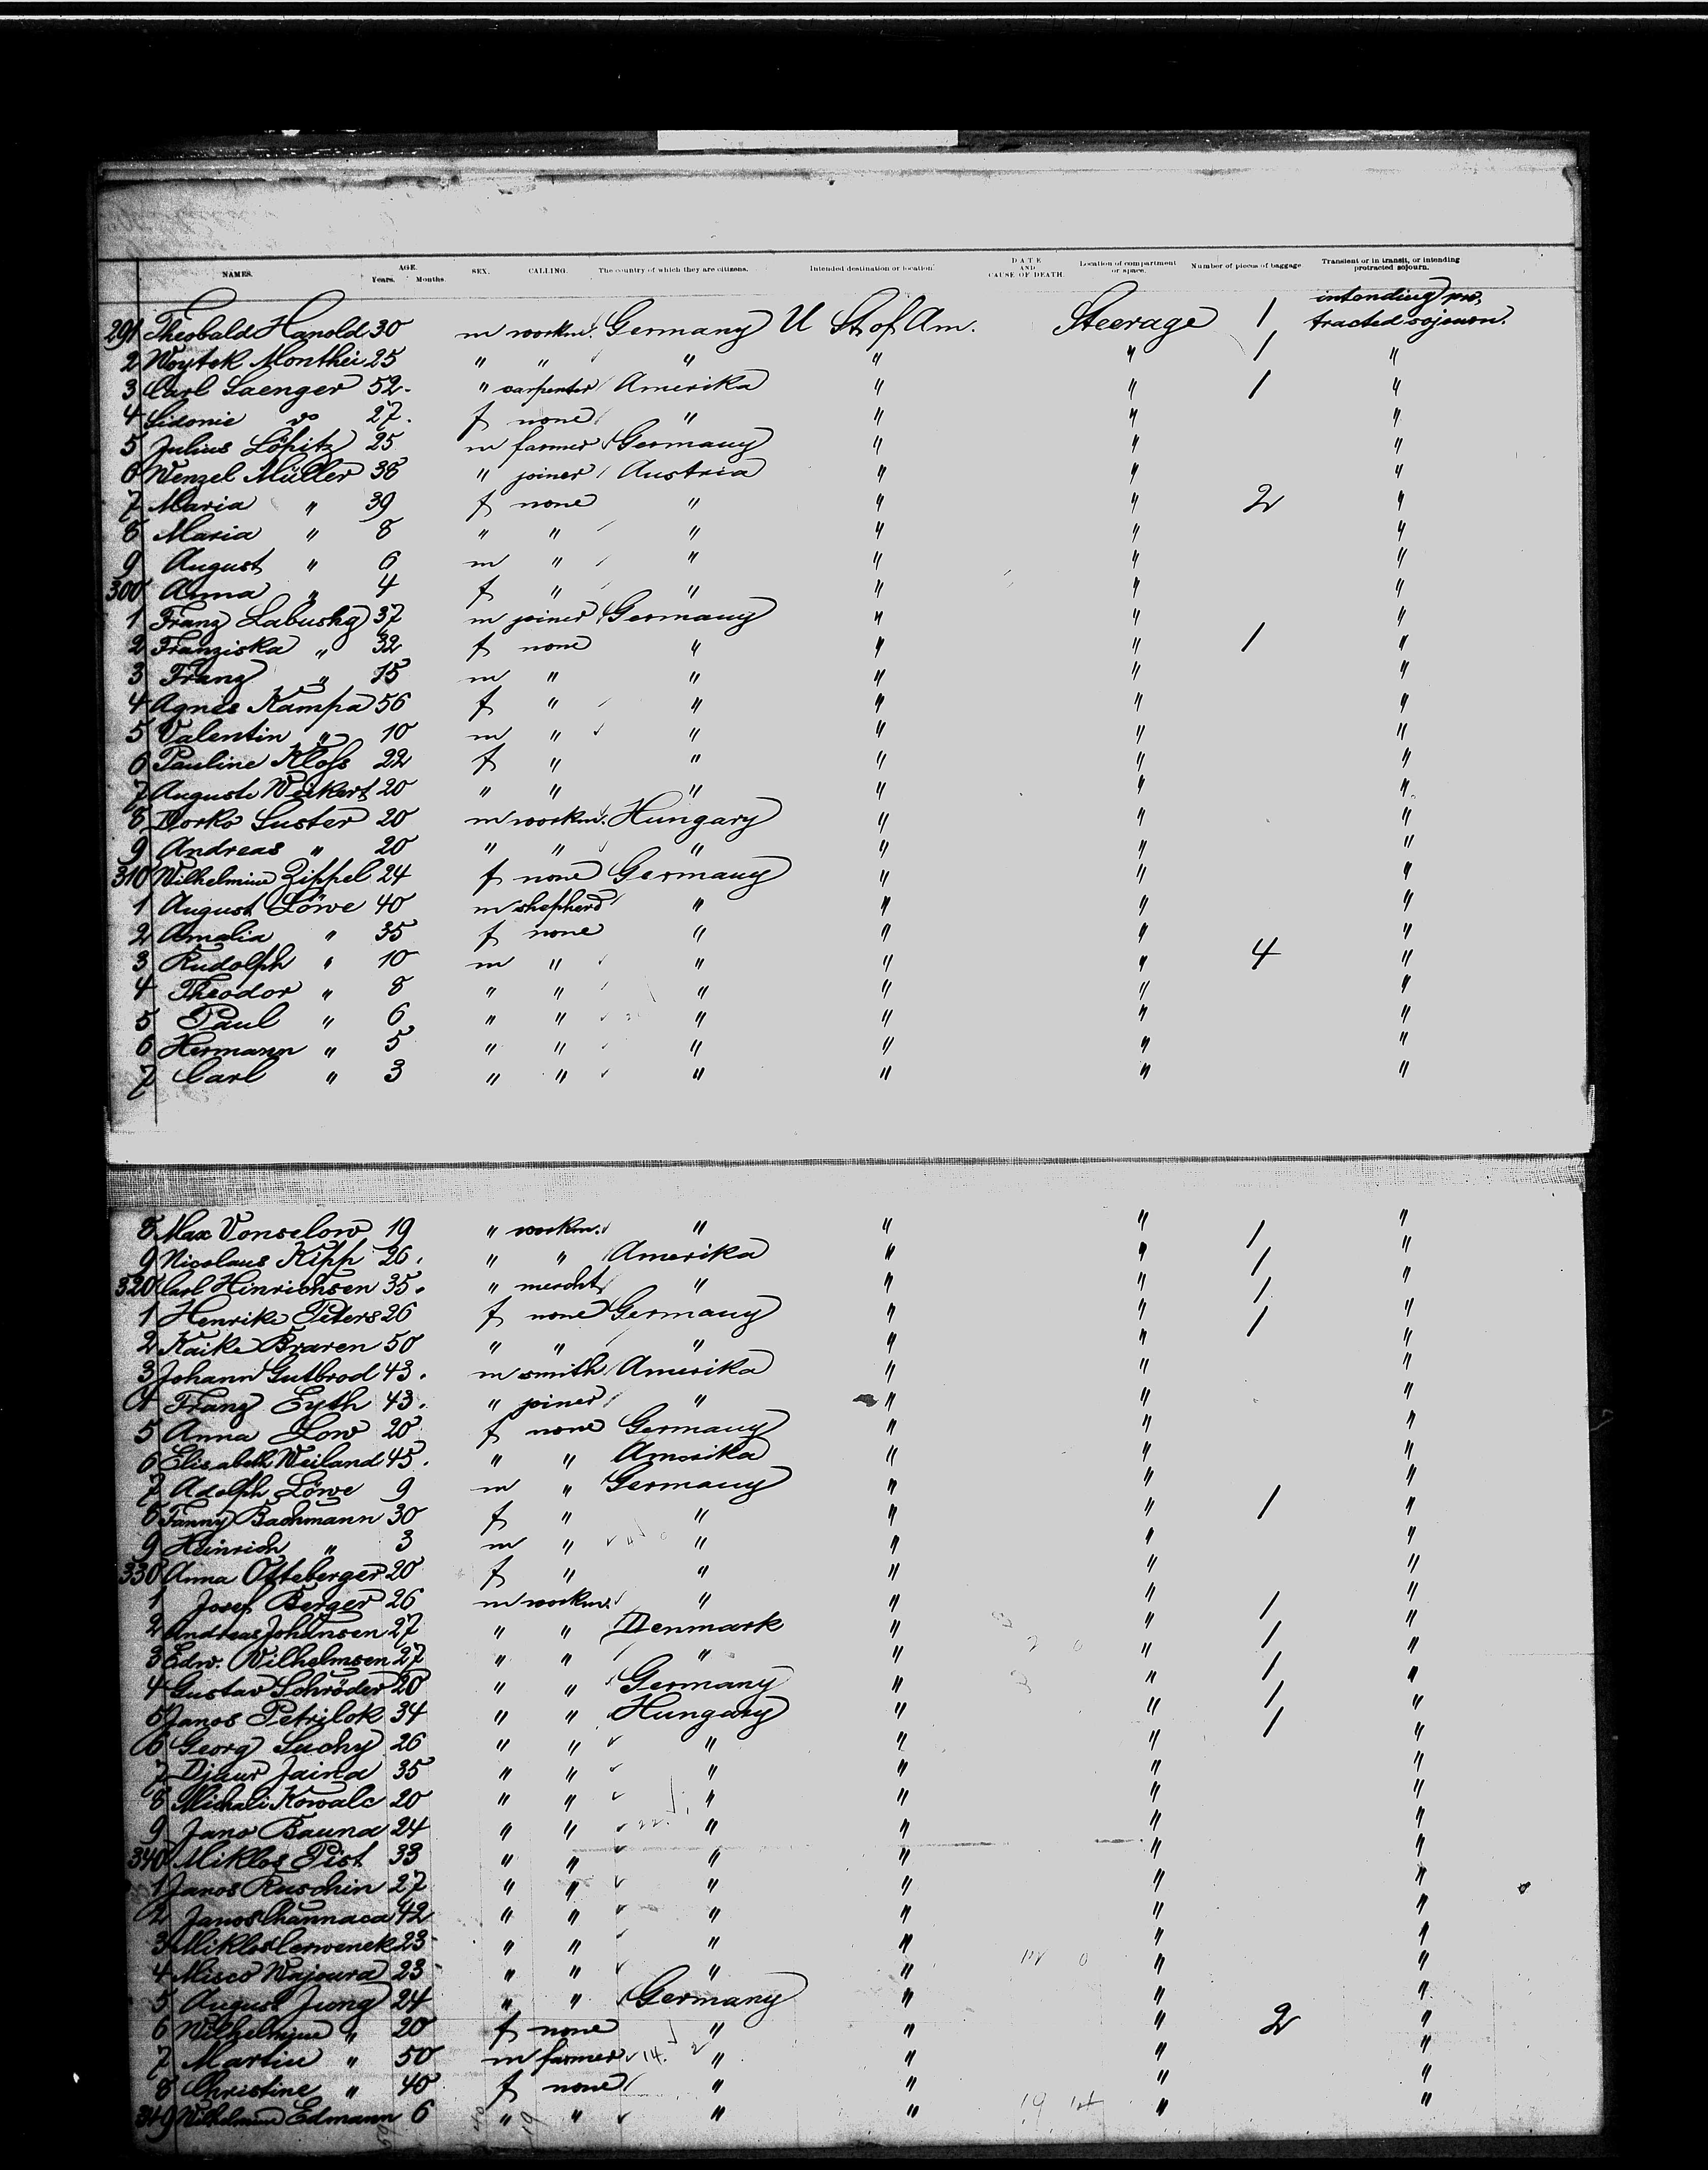 NAMES. AGE. Years. Months. SEX. CALLING. The country of which they are citizens. Intended destination or location. DATE AND CAUSE OF DEATH. Location of compartment or space. Number of pieces of baggage Transient or in transit, or intending protracted sojourn.
291 Theobald Hanold 30 m workm. Germany U St of Am. Steerage 1 intending pro, tracted sojourn.
2 Woytek Monthei 25 " " " " " 1 "
3 Carl Saenger 52. " carpenter Amerika " " 1 "
4 Sidonie do 27. f none " " " "
5 Julius Löpitz 25 m farmer Germany " " "
6 Wenzel Müller 38 " joiner Austria " " "
7 Maria " 39 f none " " " 2 "
8 Maria " 8 " " " " " "
9 August " 6 m " " " " "
300 Anna " 4 f " " " " "
1 Franz Labushg 37 m joiner Germany " " "
2 Franziska " 32 f none " " " 1 "
3 Franz " 15 m " " " " "
4 Agnes Kampa 56 f " " " " "
5 Valentin " 10 m " " " " "
6 Pauline Kloss 22 f " " " " "
7 Auguste Weikert 20 " " " " " "
8 Dorko Suster 20 m workm. Hungary " " "
9 Andreas " 20 " " " " " "
310 Wilhelmine Zippel 24 f none Germany " " "
1 August Löwe 40 m shepherd " " " "
2 Amalia " 35 f none " " " "
3 Rudolph " 10 m " " " " 4 "
4 Theodor " 8 " " " " " "
5 Paul " 6 " " " " " "
6 Hermann " 5 " " " " " "
7 Carl " 3 " " " " " "
8 Max Vonselow 19 " workm. " " " 1 "
9 Nicolaus Kipp 26. " " Amerika " " 1 "
320 Carl Hinrichsen 35. " mercht " " " 1 "
1 Henrike Peters 26 f none Germany " " 1 "
2 Kaike Braren 50 " " " " " "
3 Johann Gutbrod 43. m smith Amerika " " "
4 Franz Eyth 43. " joiner " " " "
5 Anna Low 20 f none Germany " " "
6 Elisabeth Weiland 45. " " Amerika " " "
7 Adolph Löwe 9 m " Germany " " "
8 Fanny Bachmann 30 f " " " " 1 "
9 Heinrich " 3 m " " " " "
330 Anna Otteberger 20 f " " " " "
1 Josef Berger 26 m workm. " " " 1 "
2 Andreas Johansen 27 " " Denmark " " 1 "
3 Edw. Wilhelmsen 27 " " " " " 1 "
4 Gustav Schröder 20 " " Germany " " 1 "
5 Janos Petrilok 34 " " Hungary " " 1 "
6 Georg Suchy 26 " " " " " "
7 Djaur Jaina 35 " " " " " "
8 Michali Kowalc 20 " " " " " "
9 Jano Bauna 24 " " " " " "
340 Miklos Pist 33 " " " " " "
1 Janos Ruschin 27 " " " " " "
2 Janos Channaca 42 " " " " " "
3 Miklos Cerwenek 23 " " " " " "
4 Misco Wajoura 23 " " " " " "
5 August Jung 24 " " Germany " " "
6 Wilhelmine " 20 f none " " " 2 "
7 Martin " 50 m farmer 14. " " " "
8 Christine " 40 f none " " " "
349 Wilhelmine Edmann 6 " " " " " "